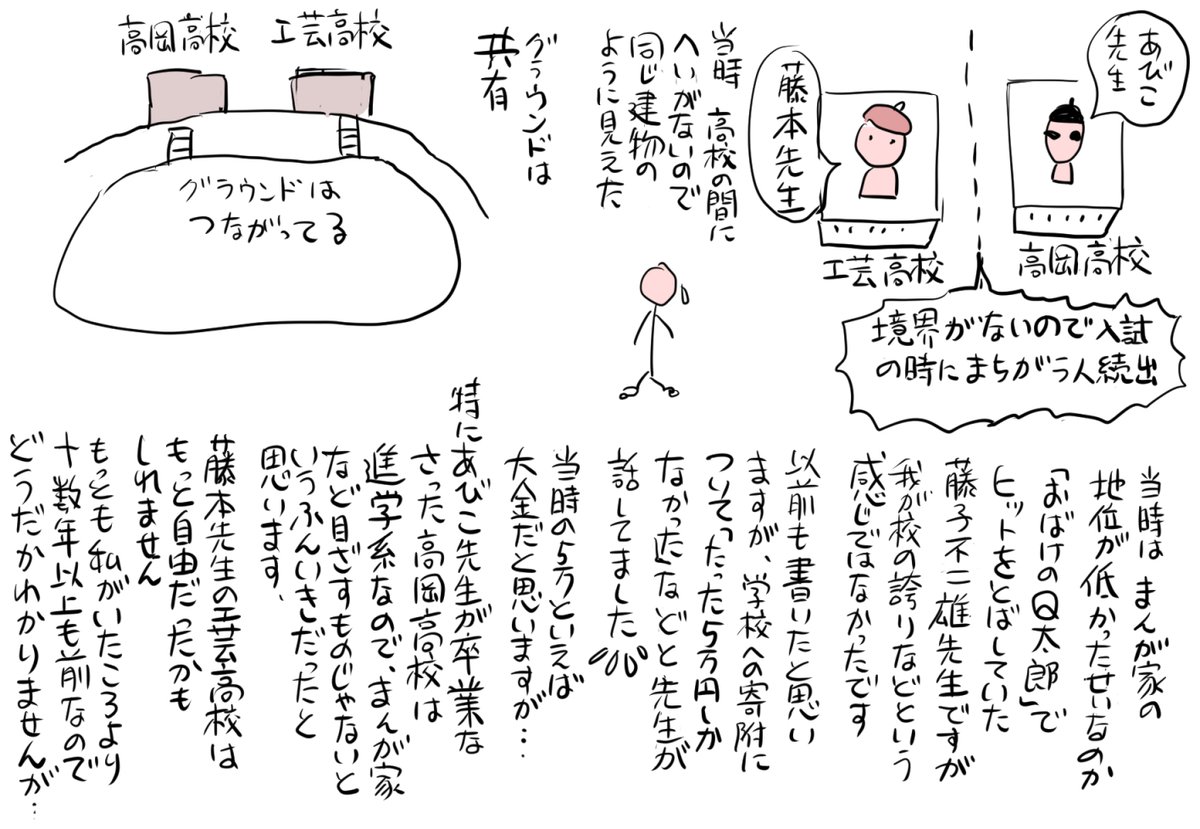 あびこ
先生
高岡高校
藤本先生
工芸高校
境界がないので入試
の時にまちがう人続出
当時 高校の間に
へいがないので
同じ建物の
ように見えた
グラウンドは
共有
高岡高校
工芸高校
グラウンドは
つながってる
当時は まんが家の
地位が低かったせいなのか
「おばけのQ太郎」で
ヒットをとばしていた
藤子不二雄先生ですが
我が校の誇りなどという
感じではなかったです
以前も書いたと思い
ますが、学校への寄附に
ついて「たった5万円しか
なかった」などと先生が
話してました
当時の5万といえば
大金だと思いますが…
特にあびこ先生が卒業な
さった高岡高校は
進学系なので、まんが家
など目ざすものじゃないと
いうふんいきだったと
思います.
藤本先生の工芸高校は
もっと自由だったかも
しれません
もっとも私がいたころより
十数年以上も前なので
どうだかわかりませんが…